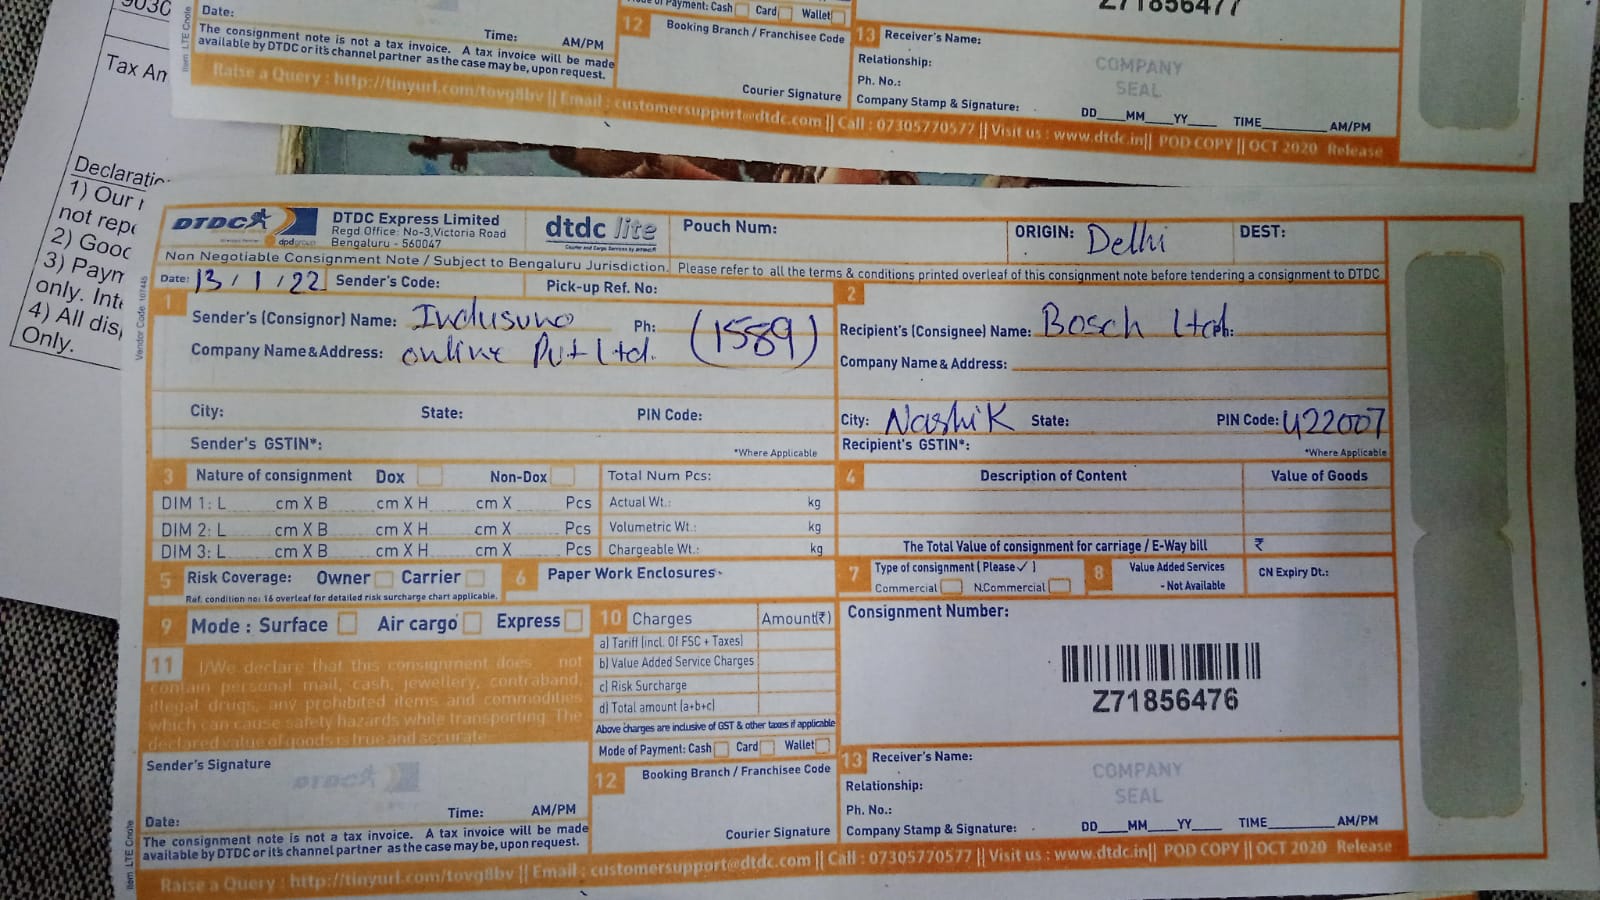 9030
Tax Am
Declaratio
1) Our r
not repe
2) Good
3) Paym
only. Inte
4) All disp
Only.
Item LTE Cnote
Date:
Time: AM/PM
The consignment note is not a tax invoice. A tax invoice will be made
available by DTDC or it's channel partner as the case may be, upon request.
Mode of Payment: Cash Card Wallet
12 Booking Branch / Franchisee Code
Courier Signature
Z71856477
13 Receiver's Name:
Relationship:
Ph. No.:
Company Stamp & Signature:
COMPANY
SEAL
DD____MM____YY____ TIME__________ AM/PM
Raise a Query : http://tinyurl.com/tovg8bv || Email : customersupport@dtdc.com || Call : 07305770577 || Visit us : www.dtdc.in|| POD COPY || OCT 2020 Release
DTDC
dpdgroup
DTDC Express Limited
Regd.Office: No-3,Victoria Road
Bengaluru - 560047
dtdc lite
Courier and Cargo Services by DTDC
Pouch Num:
ORIGIN: Delhi
DEST:
Non Negotiable Consignment Note / Subject to Bengaluru Jurisdiction. Please refer to all the terms & conditions printed overleaf of this consignment note before tendering a consignment to DTDC
Vendor Code: 107445
Date: 13/1/22 Sender's Code: Pick-up Ref. No:
1
Sender's (Consignor) Name: Indusuno Ph: (1589)
Company Name & Address: online Pvt Ltd.
City: State: PIN Code:
Sender's GSTIN*:
*Where Applicable
2
Recipient's (Consignee) Name: Bosch Ltd Ph:
Company Name & Address:
City: Nashik State: PIN Code: 422007
Recipient's GSTIN*:
*Where Applicable
3 Nature of consignment Dox Non-Dox
DIM 1: L cm X B cm X H cm X Pcs
DIM 2: L cm X B cm X H cm X Pcs
DIM 3: L cm X B cm X H cm X Pcs
Total Num Pcs:
Actual Wt.: kg
Volumetric Wt.: kg
Chargeable Wt.: kg
4 Description of Content Value of Goods
The Total Value of consignment for carriage / E-Way bill ₹
5 Risk Coverage: Owner Carrier
Ref. condition no: 16 overleaf for detailed risk surcharge chart applicable.
6 Paper Work Enclosures-
7 Type of consignment ( Please ✓ )
Commercial N.Commercial
8 Value Added Services
- Not Available
CN Expiry Dt.:
9 Mode : Surface Air cargo Express
10 Charges Amount(₹)
a) Tariff (incl. Of FSC + Taxes)
b) Value Added Service Charges
c) Risk Surcharge
d) Total amount (a+b+c)
Above charges are inclusive of GST & other taxes if applicable
Mode of Payment: Cash Card Wallet
11 I/We declare that this consignment does not
contain personal mail, cash, jewellery, contraband,
illegal drugs, any prohibited items and commodities
which can cause safety hazards while transporting. The
declared value of goods is true and accurate.
Consignment Number:
Z71856476
Sender's Signature
DTDC
Date:
Time: AM/PM
The consignment note is not a tax invoice. A tax invoice will be made
available by DTDC or it's channel partner as the case may be, upon request.
12 Booking Branch / Franchisee Code
Courier Signature
13 Receiver's Name:
Relationship:
Ph. No.:
Company Stamp & Signature:
COMPANY
SEAL
DD____MM____YY____ TIME__________ AM/PM
Item LTE Cnote
Raise a Query : http://tinyurl.com/tovg8bv || Email : customersupport@dtdc.com || Call : 07305770577 || Visit us : www.dtdc.in|| POD COPY || OCT 2020 Release